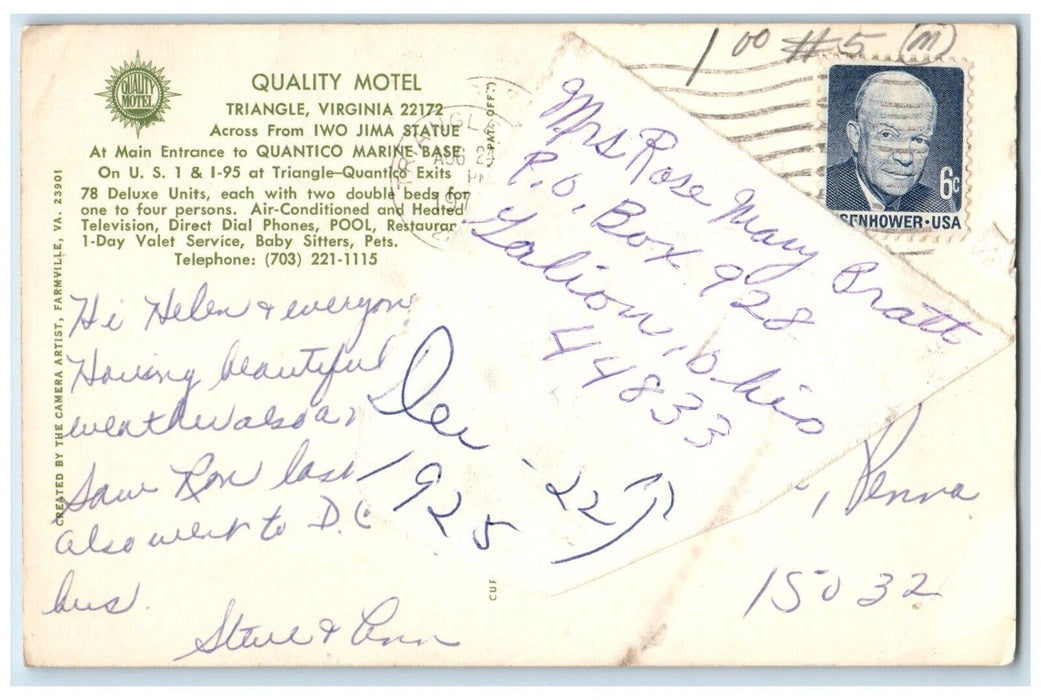 1 00 #5 (M)
QUALITY MOTEL
QUALITY MOTEL
TRIANGLE, VIRGINIA 22172
Across From IWO JIMA STATUE
At Main Entrance to QUANTICO MARINE BASE
On U. S. 1 & I-95 at Triangle-Quantico Exits
78 Deluxe Units, each with two double beds for
one to four persons. Air-Conditioned and Heated
Television, Direct Dial Phones, POOL, Restauran
1-Day Valet Service, Baby Sitters, Pets.
Telephone: (703) 221-1115
CREATED BY THE CAMERA ARTIST, FARMVILLE, VA. 23901
AUG 2
PM
6c
SENHOWER·USA
Mrs Rose Mary Pratt
P.O. Box 928
Galion, Ohio
44833
Hi Helen & everyone
Having beautiful
weather also
Saw Ron last
also went to D.C
bus.
Steve & Ann
22
1925
, Penna
15032